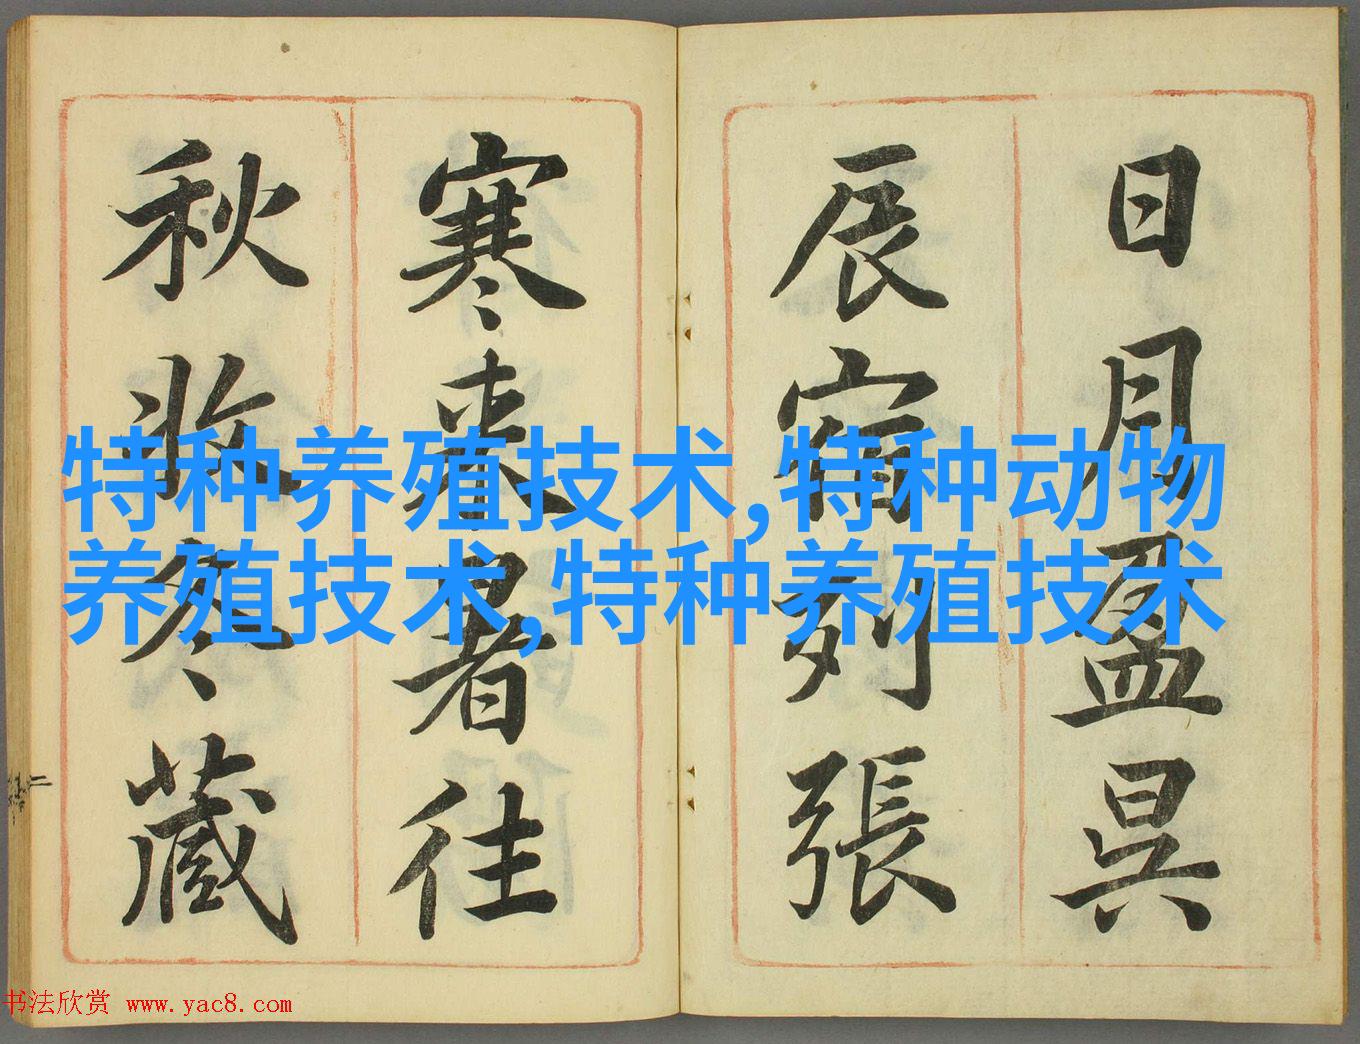 日月盈昃
辰宿列張
寒来暑往
秋收冬藏
特种养殖技术,特种动物
养殖技术,特种养殖技术
二
书法欣赏 www.yac8.com